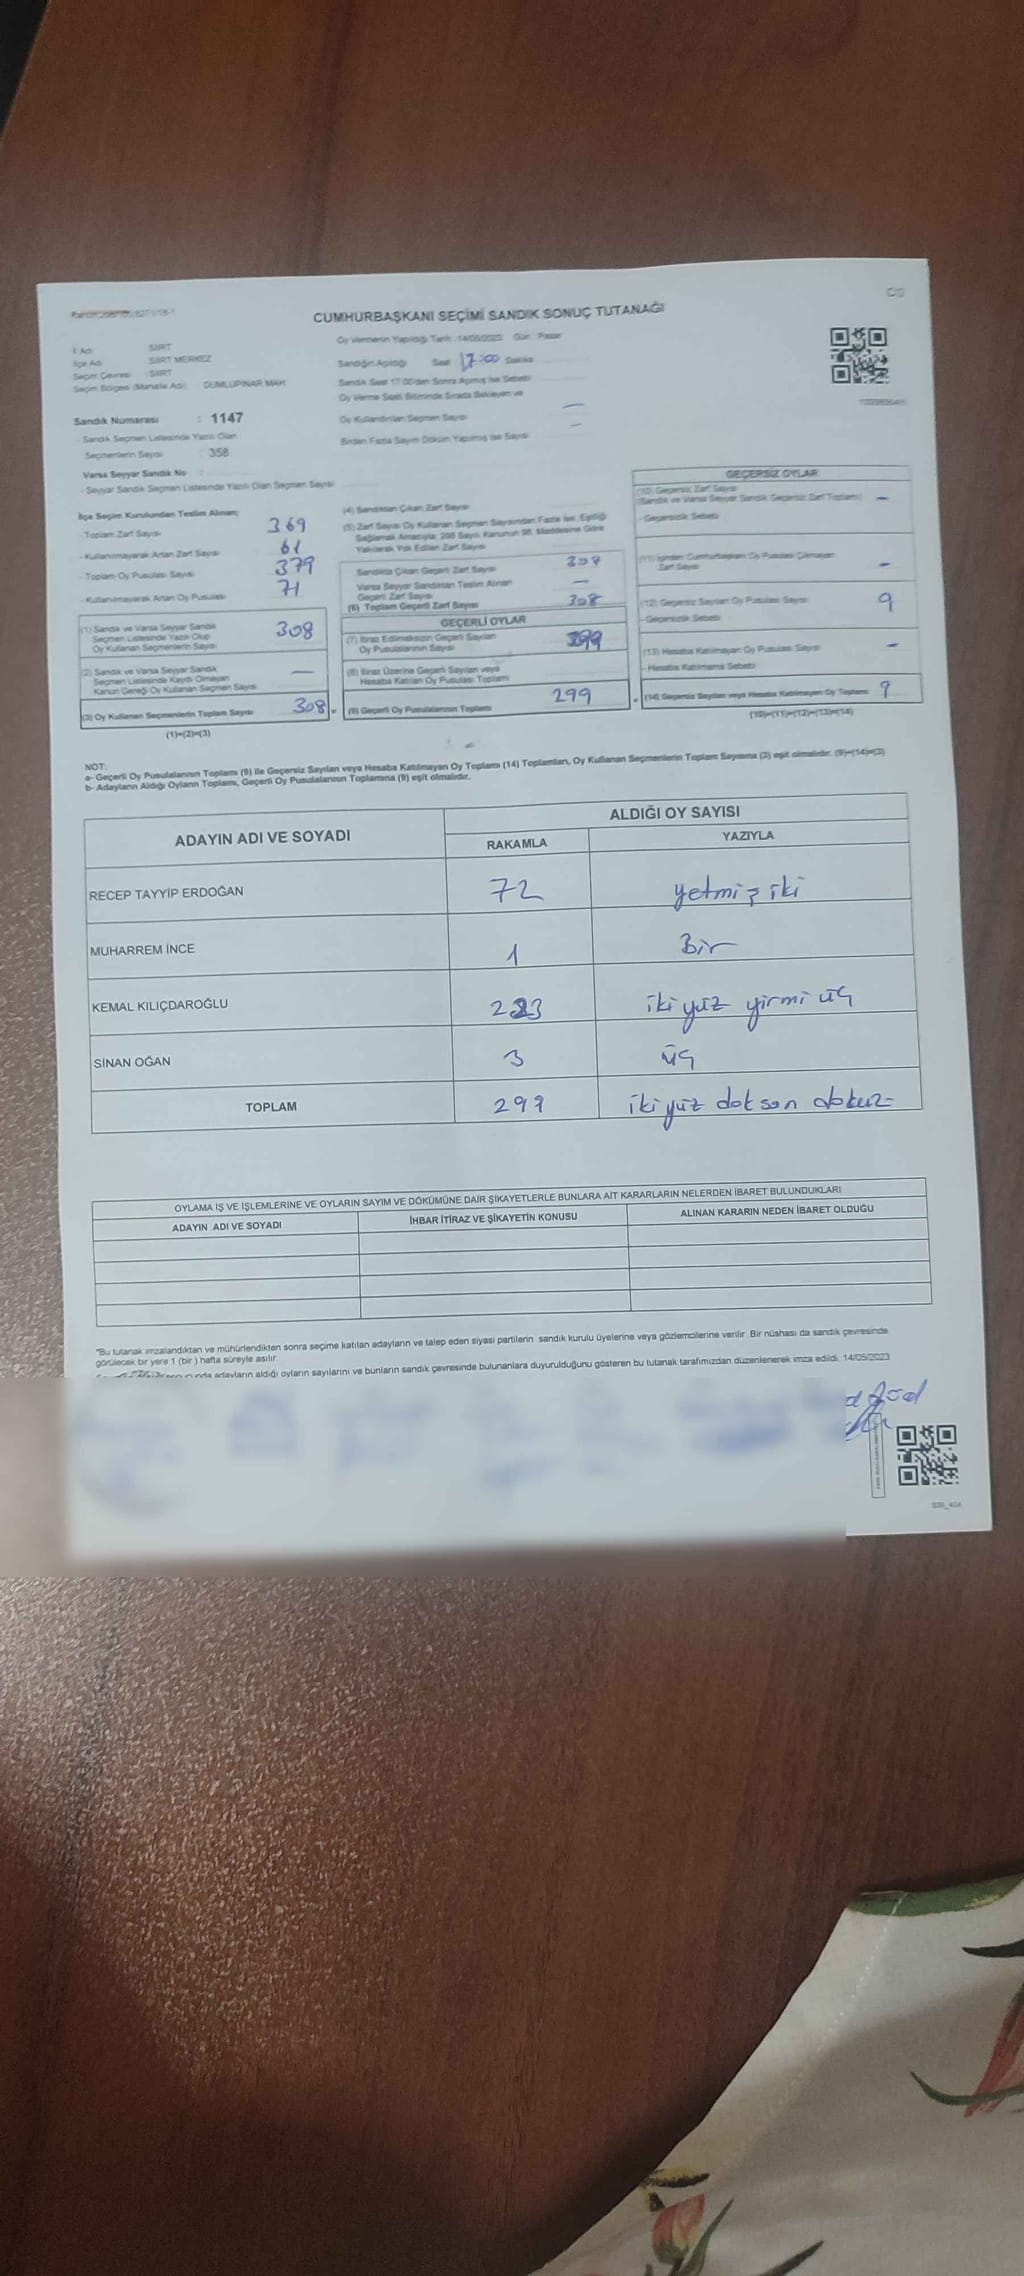 CUMHURBAŞKANI SEÇİMİ SANDIK SONUÇ TUTANAĞI
Oy Vermenin Yapıldığı Tarih: 14/05/2023 Gün: Pazar
İl Adı SİİRT
İlçe Adı SİİRT MERKEZ
Seçim Çevresi : SİİRT
Seçim Bölgesi (Mahalle Adı) DUMLUPINAR MAH
Sandığın Açıldığı Saat 17:00 Dakika
Sandık Saat 17:00'dan Sonra Açılmış İse Sebebi
Oy Verme Saati Bitiminde Sırada Bekleyen ve
Oy Kullandırılan Seçmen Sayısı —
Birden Fazla Sayım Döküm Yapılmış İse Sayısı —
Sandık Numarası : 1147
- Sandık Seçmen Listesinde Yazılı Olan
Seçmenlerin Sayısı : 358
Varsa Seyyar Sandık No :
- Seyyar Sandık Seçmen Listesinde Yazılı Olan Seçmen Sayısı
İlçe Seçim Kurulundan Teslim Alınan;
- Toplam Zarf Sayısı 369
- Kullanılmayarak Artan Zarf Sayısı 61
- Toplam Oy Pusulası Sayısı 379
- Kullanılmayarak Artan Oy Pusulası 71
(1) Sandık ve Varsa Seyyar Sandık
Seçmen Listesinde Yazılı Olup
Oy Kullanan Seçmenlerin Sayısı 308
(2) Sandık ve Varsa Seyyar Sandık
Seçmen Listesinde Kaydı Olmayan
Kanun Gereği Oy Kullanan Seçmen Sayısı —
(3) Oy Kullanan Seçmenlerin Toplam Sayısı 308
(1)+(2)=(3)
(4) Sandıktan Çıkan Zarf Sayısı
(5) Zarf Sayısı Oy Kullanan Seçmen Sayısından Fazla İse, Eşitliği
Sağlamak Amacıyla; 298 Sayılı Kanunun 98. Maddesine Göre
Yakılarak Yok Edilen Zarf Sayısı
Sandıkta Çıkan Geçerli Zarf Sayısı
Varsa Seyyar Sandıktan Teslim Alınan
Geçerli Zarf Sayısı —
(6) Toplam Geçerli Zarf Sayısı 308
GEÇERLİ OYLAR
(7) İtiraz Edilmeksizin Geçerli Sayılan
Oy Pusulalarının Sayısı 299
(8) İtiraz Üzerine Geçerli Sayılan veya
Hesaba Katılan Oy Pusulası Toplamı
(9) Geçerli Oy Pusulalarının Toplamı 299
GEÇERSİZ OYLAR
(10) Geçersiz Zarf Sayısı
(Sandık ve Varsa Seyyar Sandık Geçersiz Zarf Toplamı) —
- Geçersizlik Sebebi
(11) İçinden Cumhurbaşkanı Oy Pusulası Çıkmayan
Zarf Sayısı —
(12) Geçersiz Sayılan Oy Pusulası Sayısı 9
- Geçersizlik Sebebi
(13) Hesaba Katılmayan Oy Pusulası Sayısı —
- Hesaba Katılmama Sebebi
(14) Geçersiz Sayılan veya Hesaba Katılmayan Oy Toplamı 9
(10)+(11)+(12)+(13)=(14)
NOT:
a- Geçerli Oy Pusulalarının Toplamı (9) ile Geçersiz Sayılan veya Hesaba Katılmayan Oy Toplamı (14) Toplamları, Oy Kullanan Seçmenlerin Toplam Sayısına (3) eşit olmalıdır. (9)+(14)=(3)
b- Adayların Aldığı Oyların Toplamı, Geçerli Oy Pusulalarının Toplamına (9) eşit olmalıdır.
ADAYIN ADI VE SOYADI ALDIĞI OY SAYISI
RAKAMLA YAZIYLA
RECEP TAYYİP ERDOĞAN 72 yetmiş iki
MUHARREM İNCE 1 Bir
KEMAL KILIÇDAROĞLU 223 iki yüz yirmi üç
SİNAN OĞAN 3 üç
TOPLAM 299 iki yüz doksan dokuz
OYLAMA İŞ VE İŞLEMLERİNE VE OYLARIN SAYIM VE DÖKÜMÜNE DAİR ŞİKAYETLERLE BUNLARA AİT KARARLARIN NELERDEN İBARET BULUNDUKLARI
ADAYIN ADI VE SOYADI İHBAR İTİRAZ VE ŞİKAYETİN KONUSU ALINAN KARARIN NEDEN İBARET OLDUĞU
"Bu tutanak imzalandıktan ve mühürlendikten sonra seçime katılan adayların ve talep eden siyasi partilerin sandık kurulu üyelerine veya gözlemcilerine verilir. Bir nüshası da sandık çevresinde
görülecek bir yere 1 (bir) hafta süreyle asılır.
adayların aldığı oyların sayılarını ve bunların sandık çevresinde bulunanlara duyurulduğunu gösteren bu tutanak tarafımızdan düzenlenerek imza edildi. 14/05/2023